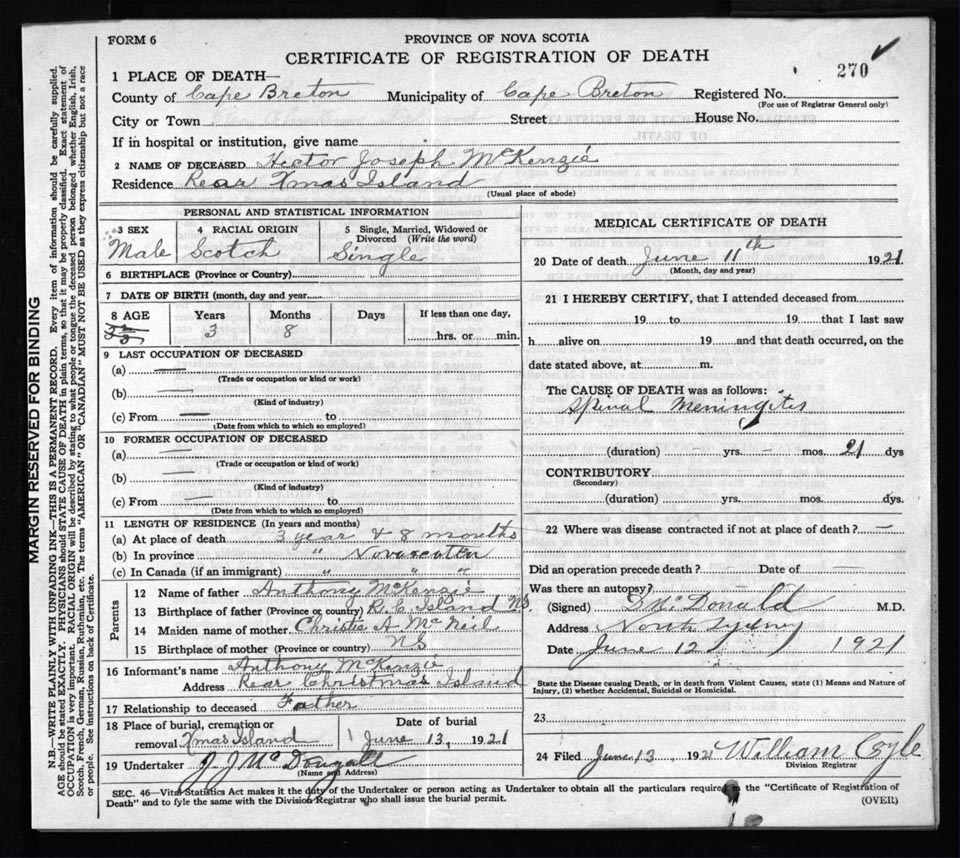 FORM 6
PROVINCE OF NOVA SCOTIA
CERTIFICATE OF REGISTRATION OF DEATH
270
1 PLACE OF DEATH—
County of Cape Breton Municipality of Cape Breton Registered No.
(For use of Registrar General only)
City or Town Street House No.
If in hospital or institution, give name
2 NAME OF DECEASED Hector Joseph McKenzie
Residence Rear Xmas Island
(Usual place of abode)
PERSONAL AND STATISTICAL INFORMATION
3 SEX 4 RACIAL ORIGIN 5 Single, Married, Widowed or Divorced (Write the word)
Male Scotch Single
6 BIRTHPLACE (Province or Country)
7 DATE OF BIRTH (month, day and year)
8 AGE Years Months Days If less than one day,
3 8 hrs. or min.
9 LAST OCCUPATION OF DECEASED
(a) —
(Trade or occupation or kind or work)
(b) —
(Kind of industry)
(c) From — to
(Date from which to which so employed)
10 FORMER OCCUPATION OF DECEASED
(a) —
(Trade or occupation or kind of work)
(b) —
(Kind of industry)
(c) From — to
(Date from which to which so employed)
11 LENGTH OF RESIDENCE (In years and months)
(a) At place of death 3 year & 8 months
(b) In province " Novascotia
(c) In Canada (if an immigrant) " " "
Parents
12 Name of father Anthony McKenzie
13 Birthplace of father (Province or country) R. C. Island N.S.
14 Maiden name of mother Christie A McNeil
15 Birthplace of mother (Province or country) NS
16 Informant's name Anthony McKenzie
Address Rear Christmas Island
17 Relationship to deceased Father
18 Place of burial, cremation or removal Xmas Island
Date of burial June 13, 1921
19 Undertaker J. J McDougall
(Name and Address)
MEDICAL CERTIFICATE OF DEATH
20 Date of death June 11th 1921
(Month, day and year)
21 I HEREBY CERTIFY, that I attended deceased from
19 to 19 that I last saw
h alive on 19 and that death occurred, on the
date stated above, at m.
The CAUSE OF DEATH was as follows:
Spinal Meningitis
(duration) - yrs. - mos. 21 dys
CONTRIBUTORY
(Secondary)
(duration) yrs. mos. dys.
22 Where was disease contracted if not at place of death? —
Did an operation precede death? — Date of —
Was there an autopsy? —
(Signed) D McDonald M.D.
Address North Sydney
Date June 12 1921
State the Disease causing Death, or in death from Violent Causes, state (1) Means and Nature of
Injury, (2) whether Accidental, Suicidal or Homicidal.
23
24 Filed June 13 1921 William Coyle
Division Registrar
SEC. 46—Vital Statistics Act makes it the duty of the Undertaker or person acting as Undertaker to obtain all the particulars required in the "Certificate of Registration of
Death" and to fyle the same with the Division Registrar who shall issue the burial permit.
(OVER)
MARGIN RESERVED FOR BINDING
N.B.—WRITE PLAINLY WITH UNFADING INK—THIS IS A PERMANENT RECORD. Every item of information should be carefully supplied.
AGE should be stated EXACTLY. PHYSICIANS should STATE CAUSE OF DEATH in plain terms, so that it may be properly classified. Exact statement of
OCCUPATION is very important. RACIAL ORIGIN will be described by stating to what people or tongue the deceased person belonged whether English, Irish,
Scotch, French, German, Russian, Ruthenian, etc. The terms "AMERICAN" OR "CANADIAN" MUST NOT BE USED as they express citizenship but not a race
or people. See instructions on back of Certificate.